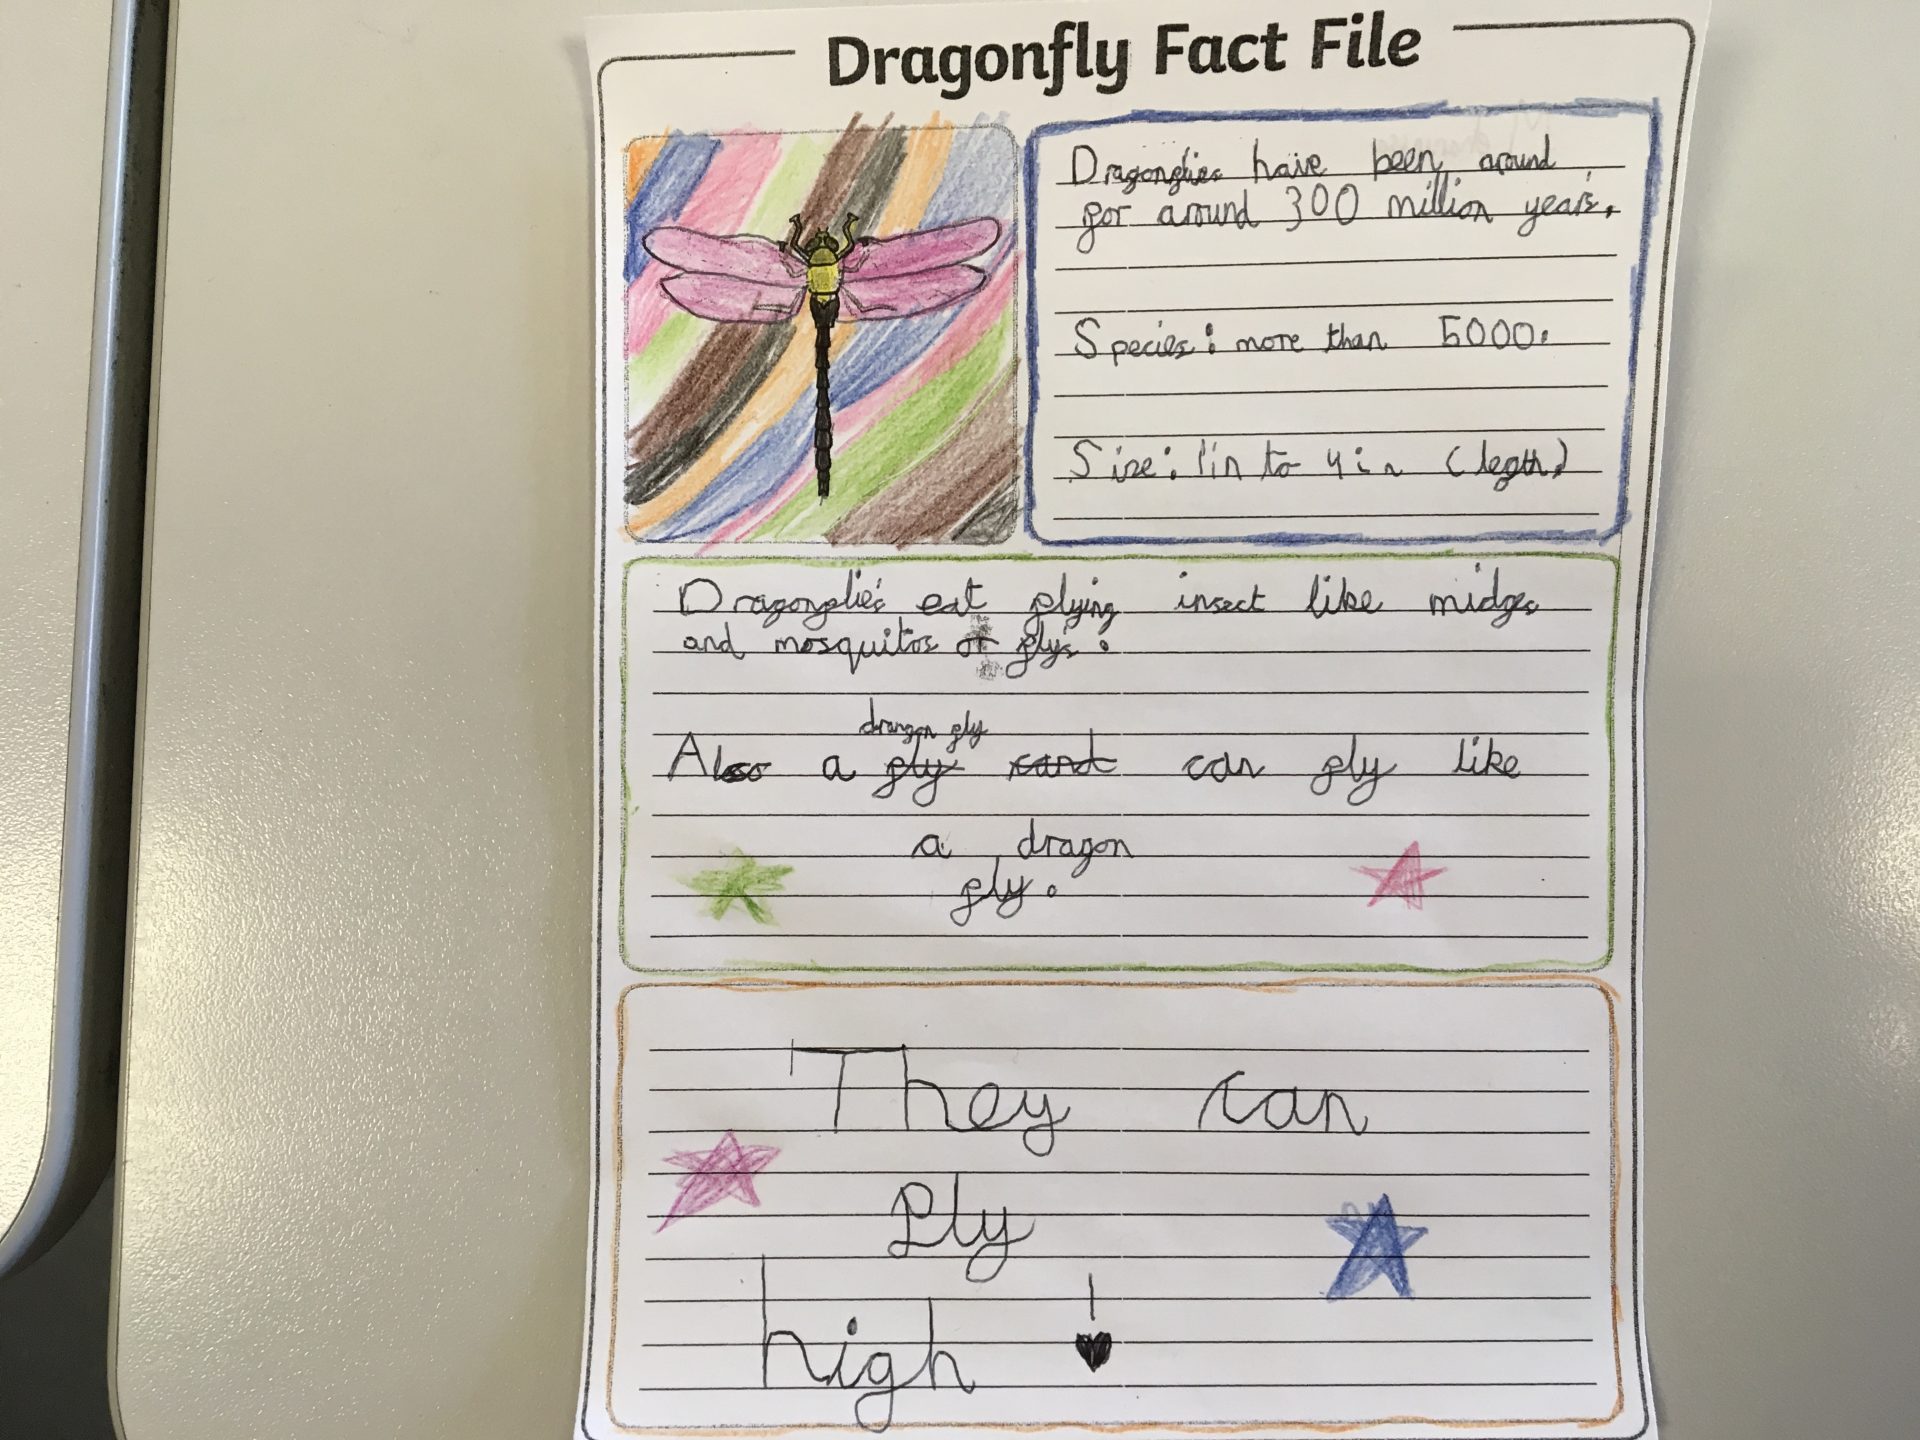 Dragonfly Fact File
Dragonflies have been around
for around 300 million years.
Species: more than 5000.
Size: 1in to 4in (legth)
Dragonflie's eat flying insect like midges
and mosquitos or fly's.
drangon fly
Also a fly cant can fly like
a dragon
fly.
They can
fly
high !